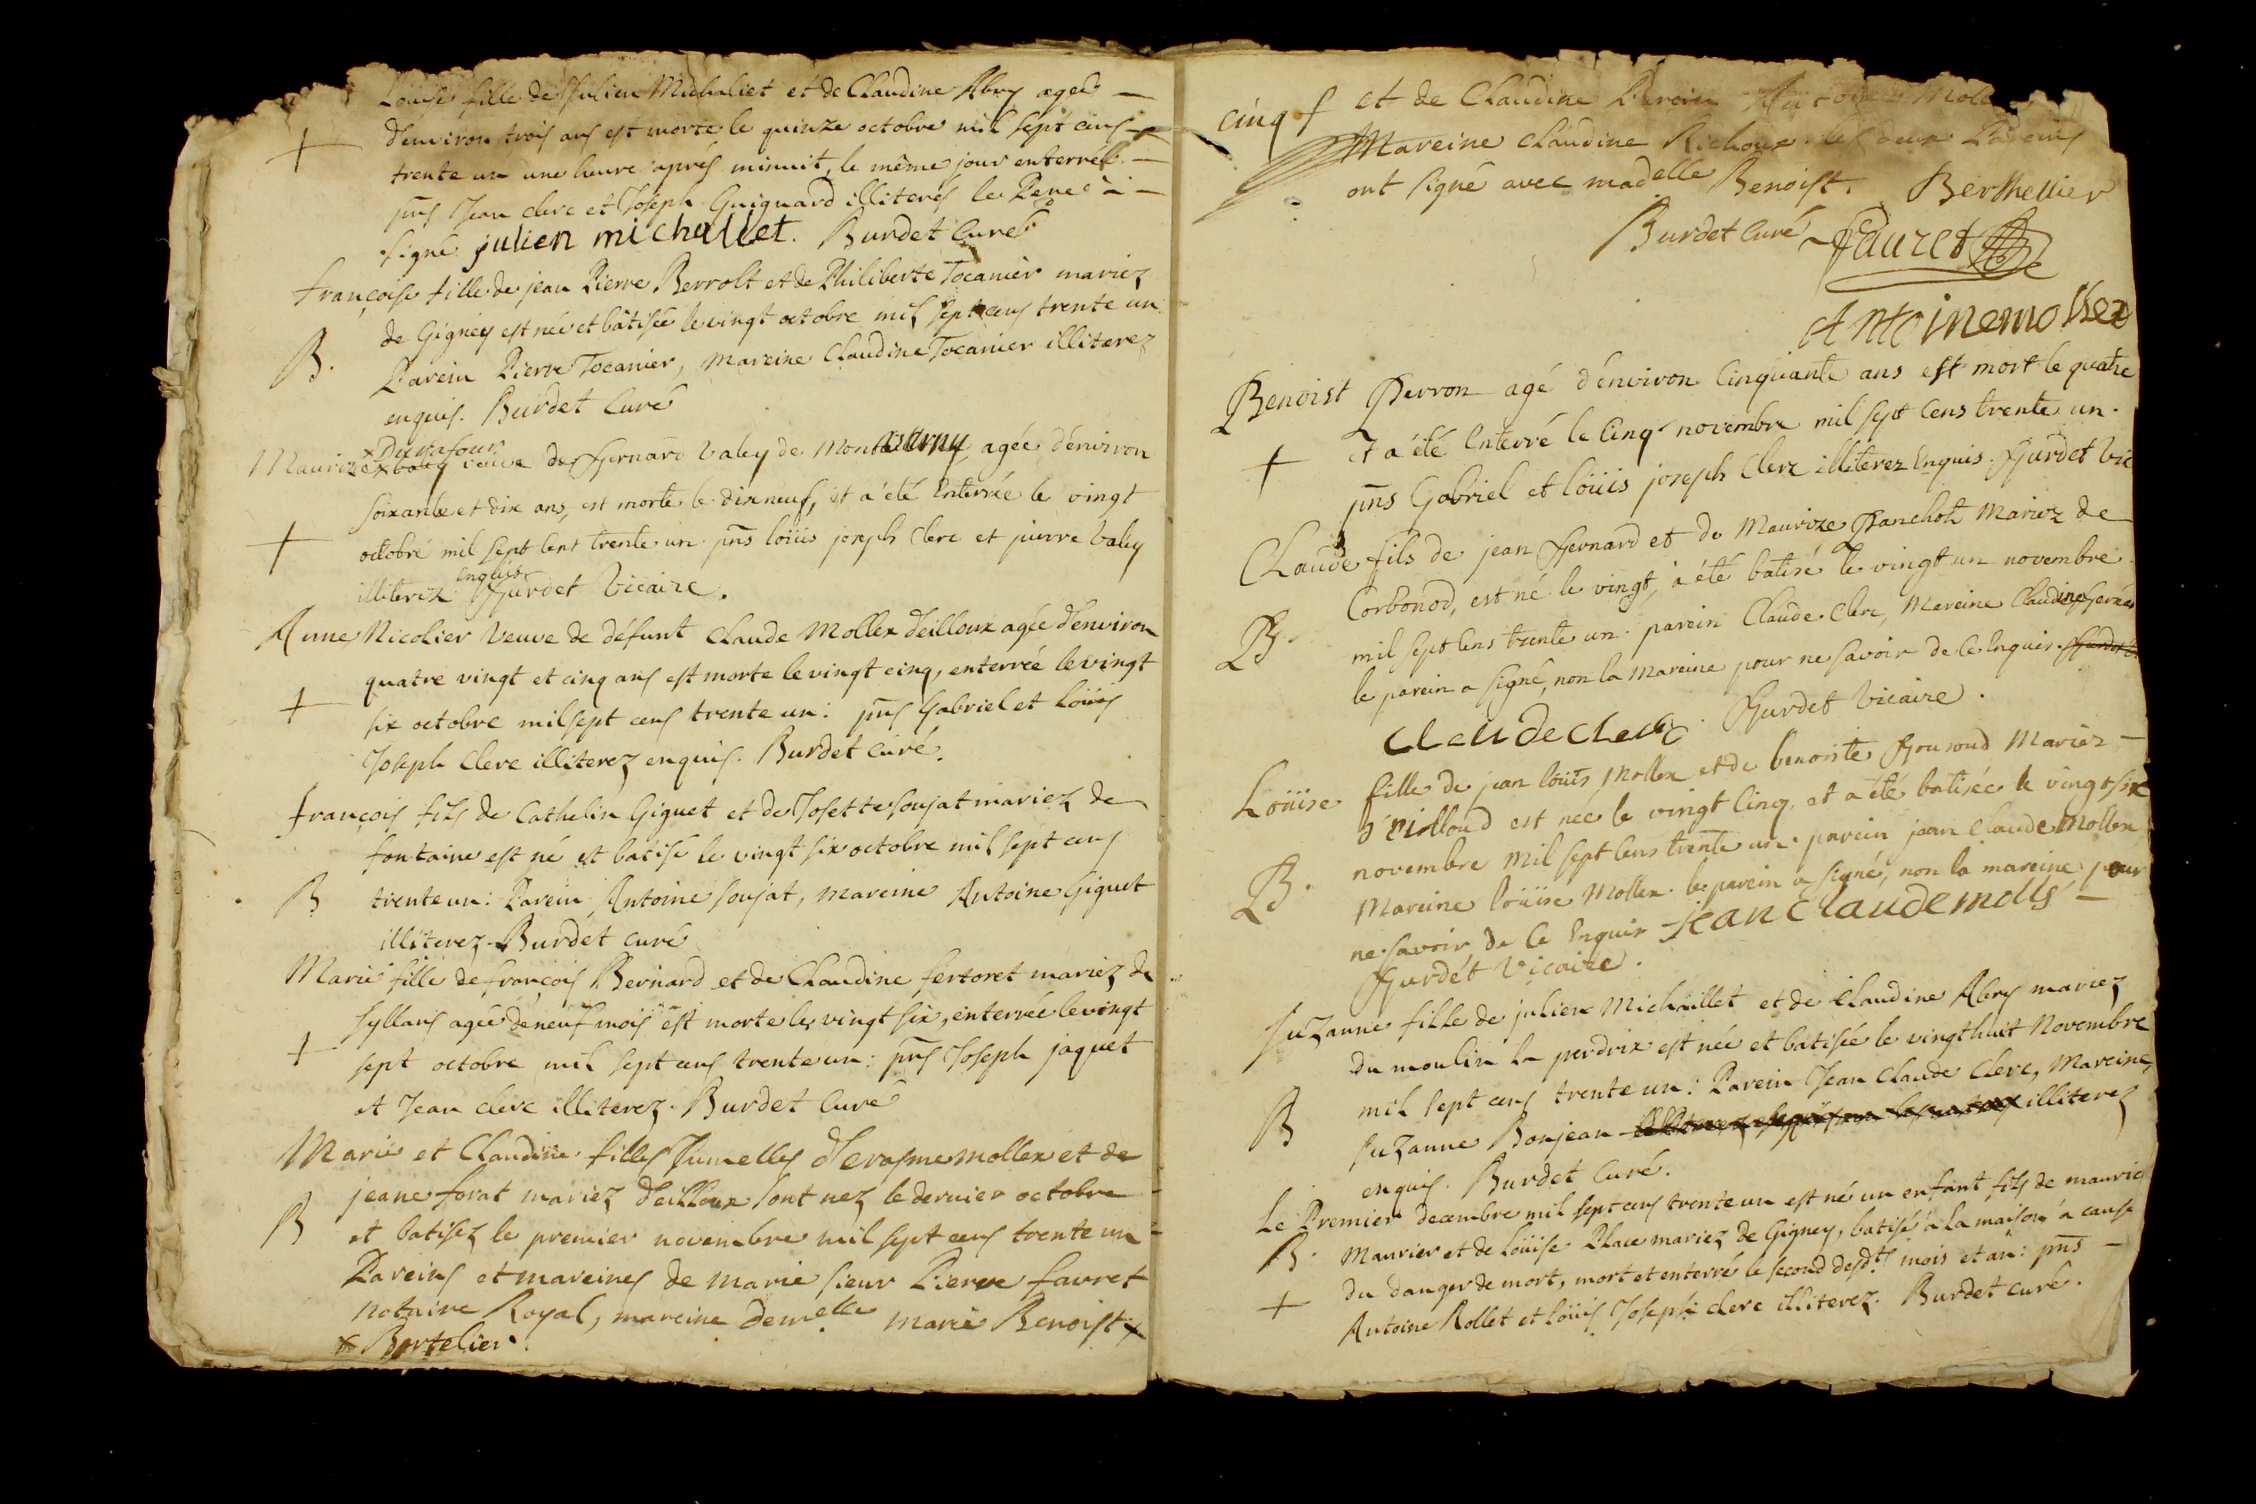 Louise fille de Julien Michaliet et de Claudine Abry agée
d'environ trois ans est morte le quinze octobre mil sept cens
+
trente un une heure aprés minuit, le même jour enterrée.
pns Jean clerc et Joseph Guignard illiterés le Pere à
signé julien michallet. Burdet Curé
françoise fille de jean Pierre Berrolt et de Philiberte Tocanier mariez
de Gigney est née et bâtisée le vingt octobre mil sept cens trente un
B.
Parein Pierre Tocanier, Mareine Claudine Tocanier illiterez
enquis. Burdet Curé
x Dupafour
Maurize veuve de Bernard Valey de agée d'environ
soixante et dix ans, est morte le dixneuf, et a été Enterrée le vingt
+
octobre mil sept cens trente un pns loüis joseph Clerc et pierre Valey
Enquis
illiterez Burdet Vicaire.
Anne Nicolier Veuve de défunt Claude Mollex d'eilloux agée d'environ
quatre vingt et cinq ans est morte le vingt cinq, enterrée le vingt
+
six octobre mil sept cens trente un: pns Gabriel et Loüis
Joseph Clerc illiterez enquis. Burdet curé.
françois fils de Cathelin Giguet et de Josette soujat mariez de
fontaine est né et bâtisé le vingt six octobre mil sept cens
B
trente un: Parein Antoine soujat, mareine Antoine Giguet
illiterez. Burdet curé
Marie fille de françois Bernard et de Claudine fertoret mariez de
syllans agée de neuf mois est morte le vingt six, enterrée le vingt
+
sept octobre mil sept cens trente un: pns Joseph jaquet
et Jean clerc illiterez. Burdet Curé
Marie et Claudine filles Jumelles d'Erasme mollex et de
jeane forat mariez d'eilloux sont nez le dernier octobre
B
et batisez le premier novembre mil sept cens trente un
Pareins et mareines de Marie sieur Pierre favret
notaire Royal, mareine Demelle marie Benoist x
x Bertelier.
cinq f et de Claudine Parein Antoine
Mareine Claudine Richoux. les deux Pareins
ont signé avec madelle Benoist. Berthellier
Burdet Curé Fauret
Antoine mollex
Benoist Perron agé d'environ Cinquante ans est mort le quatre
et a été Enterré le Cinq novembre mil sept Cens trente un.
+
pns Gabriel et loüis joseph Clerc illiterez Enquis. Burdet Vic
Claude fils de jean Bernard et de Maurize Panchoh Mariez de
Corbonod, est né le vingt, a été batisé le vingt un novembre
B.
mil sept Cens trente un. parein Claude Clerc, Mareine Claudine
le parein a signé, non la mareine pour ne savoir de ce Enquis.
Claude Clerc. Burdet Vicaire.
Loüise fille de jean loüis Mollex et de benoiste Mariez
d'eilloud est née le vingt Cinq, et a été batisée le vingt six
B.
novembre mil sept Cens trente un. parein jean Claude Mollex,
Mareine loüise Mollex. le parein a signé, non la mareine pour
ne savoir de ce Enquis jean Claude molls
Burdet Vicaire.
suzanne fille de julien Michaillet et de Claudine Abry mariez
du moulin la perdrix est née et bâtisée le vingt huit Novembre
B
mil sept cens trente un: Parein Jean Claude Clerc, Mareine
suzanne Bonjean illiterez
enquis. Burdet Curé.
Le Premier decembre mil sept cens trente un est né un enfant fils de maurice
B.
Maurier et de Loüise Place mariez de Gigney, batisé à la maison à cause
du danger de mort, mort et enterré le second desdts mois et an: pns
+
Antoine Rollet et Loüis Joseph clerc illiterez. Burdet curé.